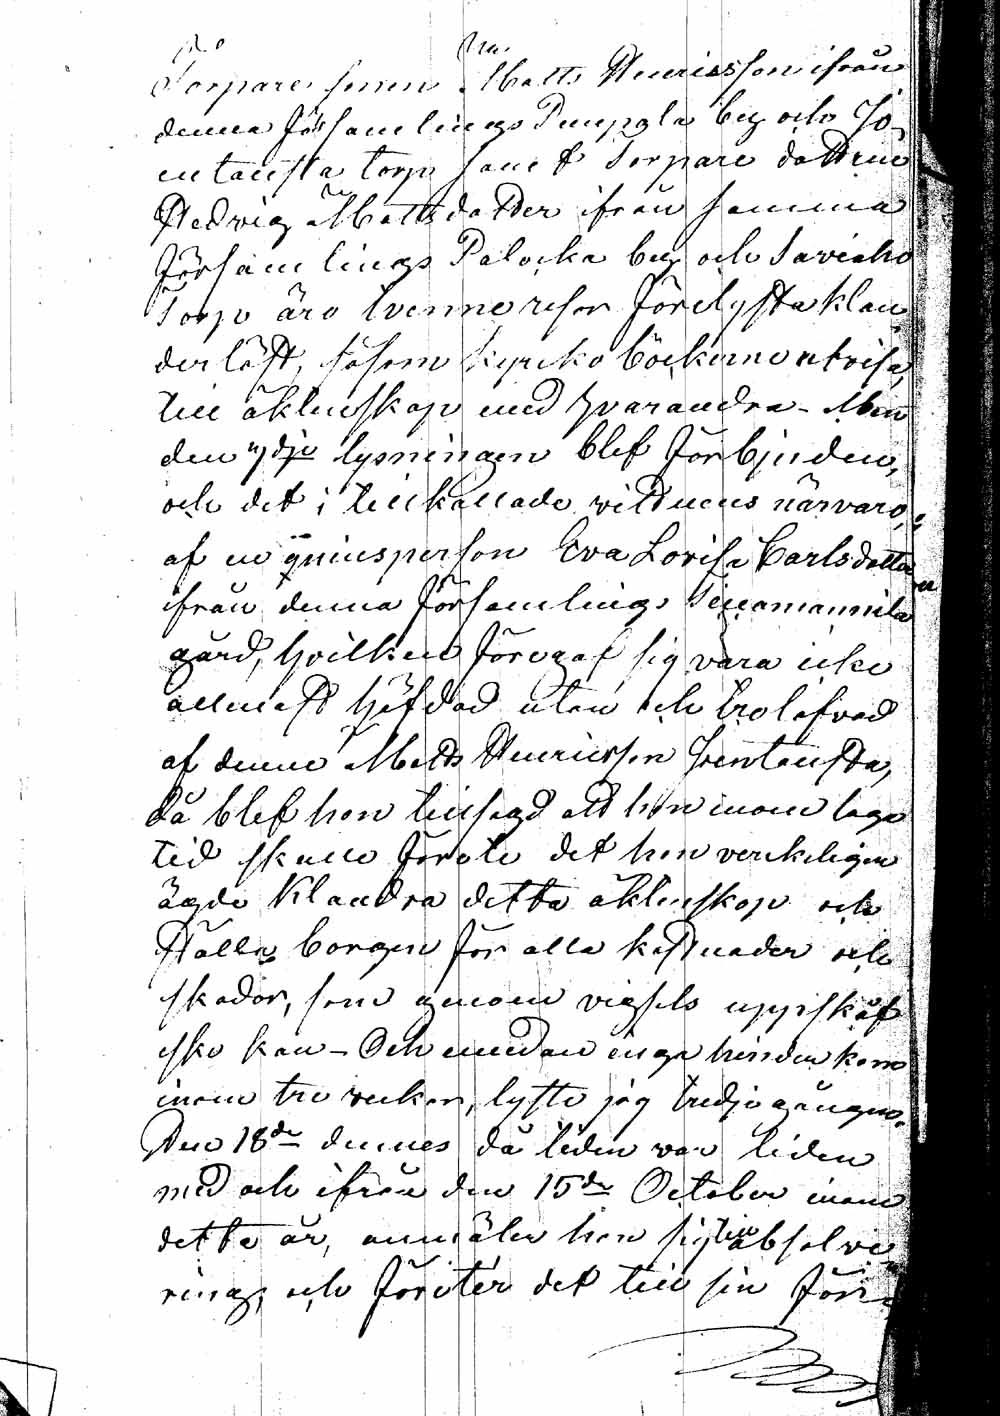 Torpare sonen Matts Henricsson ifrån
denna församlings Pungla by och Jö
entausta torp samt Torpare dottren
Hedvig Mattsdotter ifrån samma
församlings Palocka by och Saviaho
Torp äro tvenne resor förelysta klan
derlöst, såsom kyrko böckerne utvisa,
till äktenskap med hvarandra - Men
den 3dje lysningen blef förbjuden,
och det i tillkallade vittnens närvaro,
af en qvinsperson Eva Lovisa Carlsdotter
ifrån denna församlings
gård, hvilken föregaf sig vara icke
allenast häfdad utan och trolofvad
af denne Matts Henricsson Joentausta,
då blef hon tillsagd att hon inom laga
tid skulle förete det hon verkeligen
ägde klandra detta äktenskap och
ställa borgen för alla kostnader och
skador, som genom vigsels uppskåf
ske kan - Och emedan inga hinder kom
inom tre veckor, lyste jag tredje gången.
Den 18de dennes då tiden var liden
med och ifrån den 15de October inom
detta år, anmäler hon sig till absolve
ring, och företer det till sin för